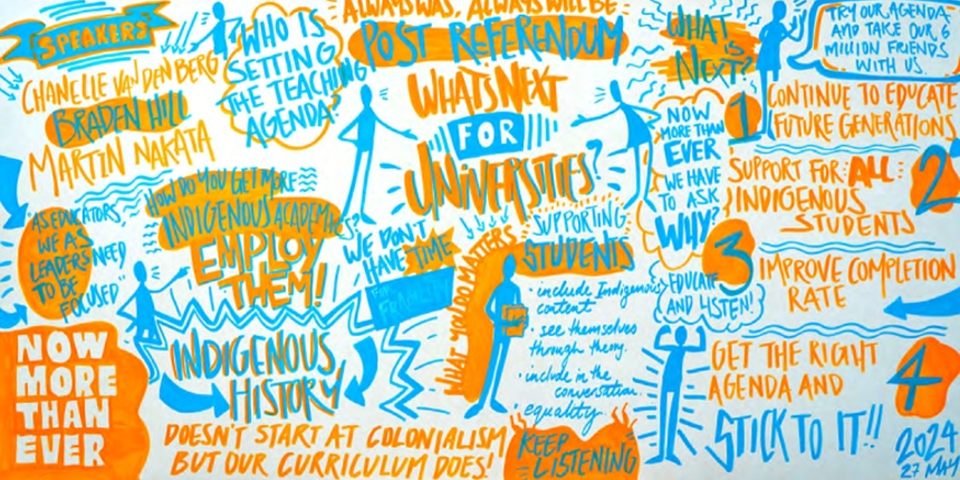 SPEAKERS
CHANELLE VAN DEN BERG
BRADEN HILL
MARTIN NAKATA
WHO IS
SETTING
THE TEACHING
AGENDA?
ALWAYS WAS, ALWAYS WILL BE
POST REFERENDUM
WHAT'S NEXT
FOR
UNIVERSITIES?
WHAT
IS
NEXT?
TRY OUR AGENDA
AND TAKE OUR 6
MILLION FRIENDS
WITH US.
1
CONTINUE TO EDUCATE
FUTURE GENERATIONS
NOW
MORE THAN
EVER
WE HAVE
TO ASK
WHY?
2
SUPPORT FOR ALL
INDIGENOUS
STUDENTS
3
IMPROVE COMPLETION
RATE
EDUCATE
(AND LISTEN!)
4
GET THE RIGHT
AGENDA AND
STICK TO IT!!
2024
27 MAY
AS EDUCATORS,
WE AS
LEADERS NEED
TO BE
FOCUSED
HOW DO YOU GET MORE
INDIGENOUS ACADEMICS?
EMPLOY
THEM!
WE DON'T
HAVE TIME
FOR
WHAT YOU DO MATTERS
SUPPORTING
STUDENTS
• include Indigenous
content
• see themselves
through theory.
• include in the
conversation.
• equality.
NOW
MORE
THAN
EVER
INDIGENOUS
HISTORY
DOESN'T START AT COLONIALISM
BUT OUR CURRICULUM DOES!
KEEP
LISTENING